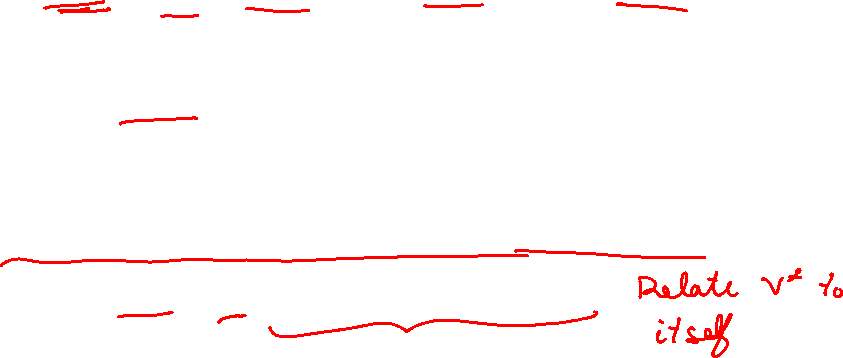 Relate V* to
itself